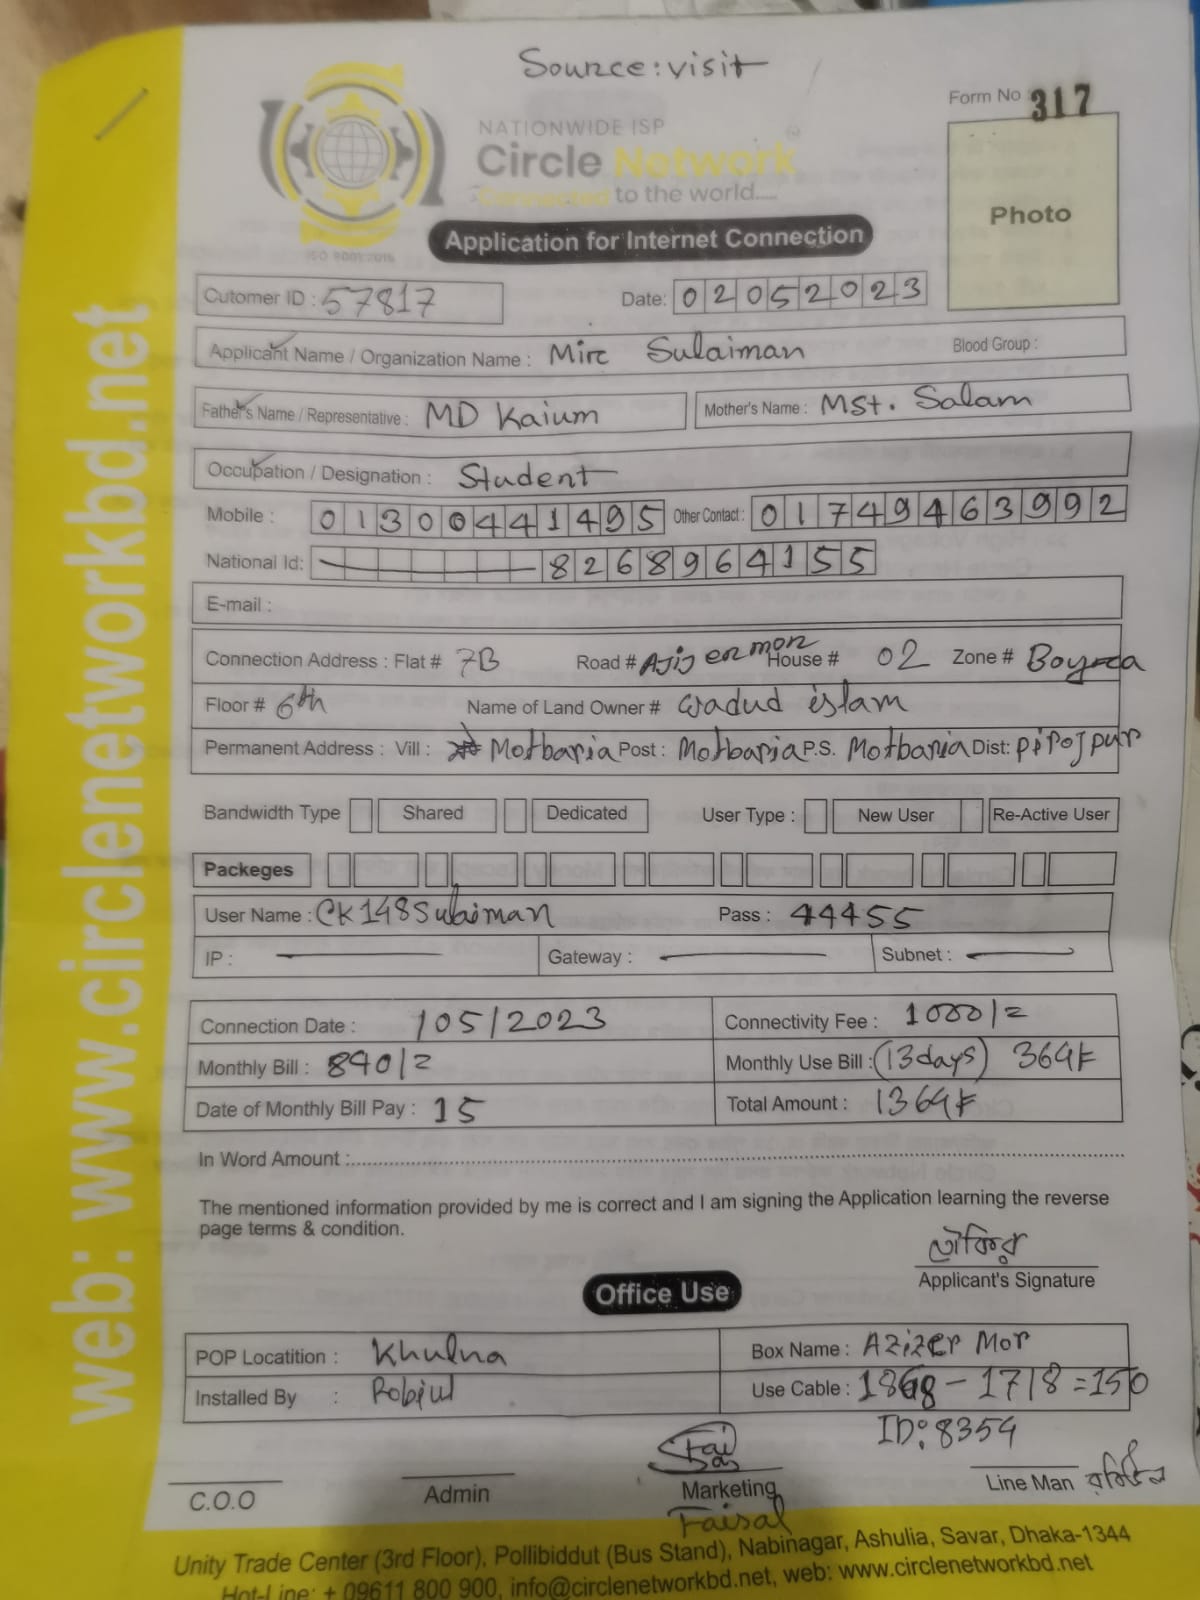 Source: visit
Form No 317
NATIONWIDE ISP
Circle Network
Connected to the world....
Photo
ISO 9001:2015
Application for Internet Connection
Cutomer ID : 57817 Date: 02052023
Applicant Name / Organization Name : Mirc Sulaiman Blood Group :
Father's Name / Representative : MD Kaium Mother's Name : Mst. Salam
Occupation / Designation : Student
Mobile : 01300441495 Other Contact : 01749463992
National Id: 8268964155
E-mail :
Connection Address : Flat # 7B Road # Ajij er mor House # 02 Zone # Boyra
Floor # 6th Name of Land Owner # wadud islam
Permanent Address : Vill : Motbaria Post : Motbaria P.S. Motbaria Dist: pirojpur
Bandwidth Type Shared Dedicated User Type : New User Re-Active User
Packeges
User Name : CK148Sulaiman Pass : 44455
IP : Gateway : Subnet :
Connection Date : /05/2023 Connectivity Fee : 1000/=
Monthly Bill : 840/= Monthly Use Bill : (13days) 364৳
Date of Monthly Bill Pay : 15 Total Amount : 1364৳
In Word Amount :
The mentioned information provided by me is correct and I am signing the Application learning the reverse
page terms & condition.
Applicant's Signature
Office Use
POP Locatition : Khulna Box Name : Azizer Mor
Installed By : Robiul Use Cable : 1868 - 1718 = 150
ID: 8354
C.O.O Admin Marketing Line Man
Faisal
Unity Trade Center (3rd Floor), Pollibiddut (Bus Stand), Nabinagar, Ashulia, Savar, Dhaka-1344
Hot-Line: + 09611 800 900, info@circlenetworkbd.net, web: www.circlenetworkbd.net
web: www.circlenetworkbd.net